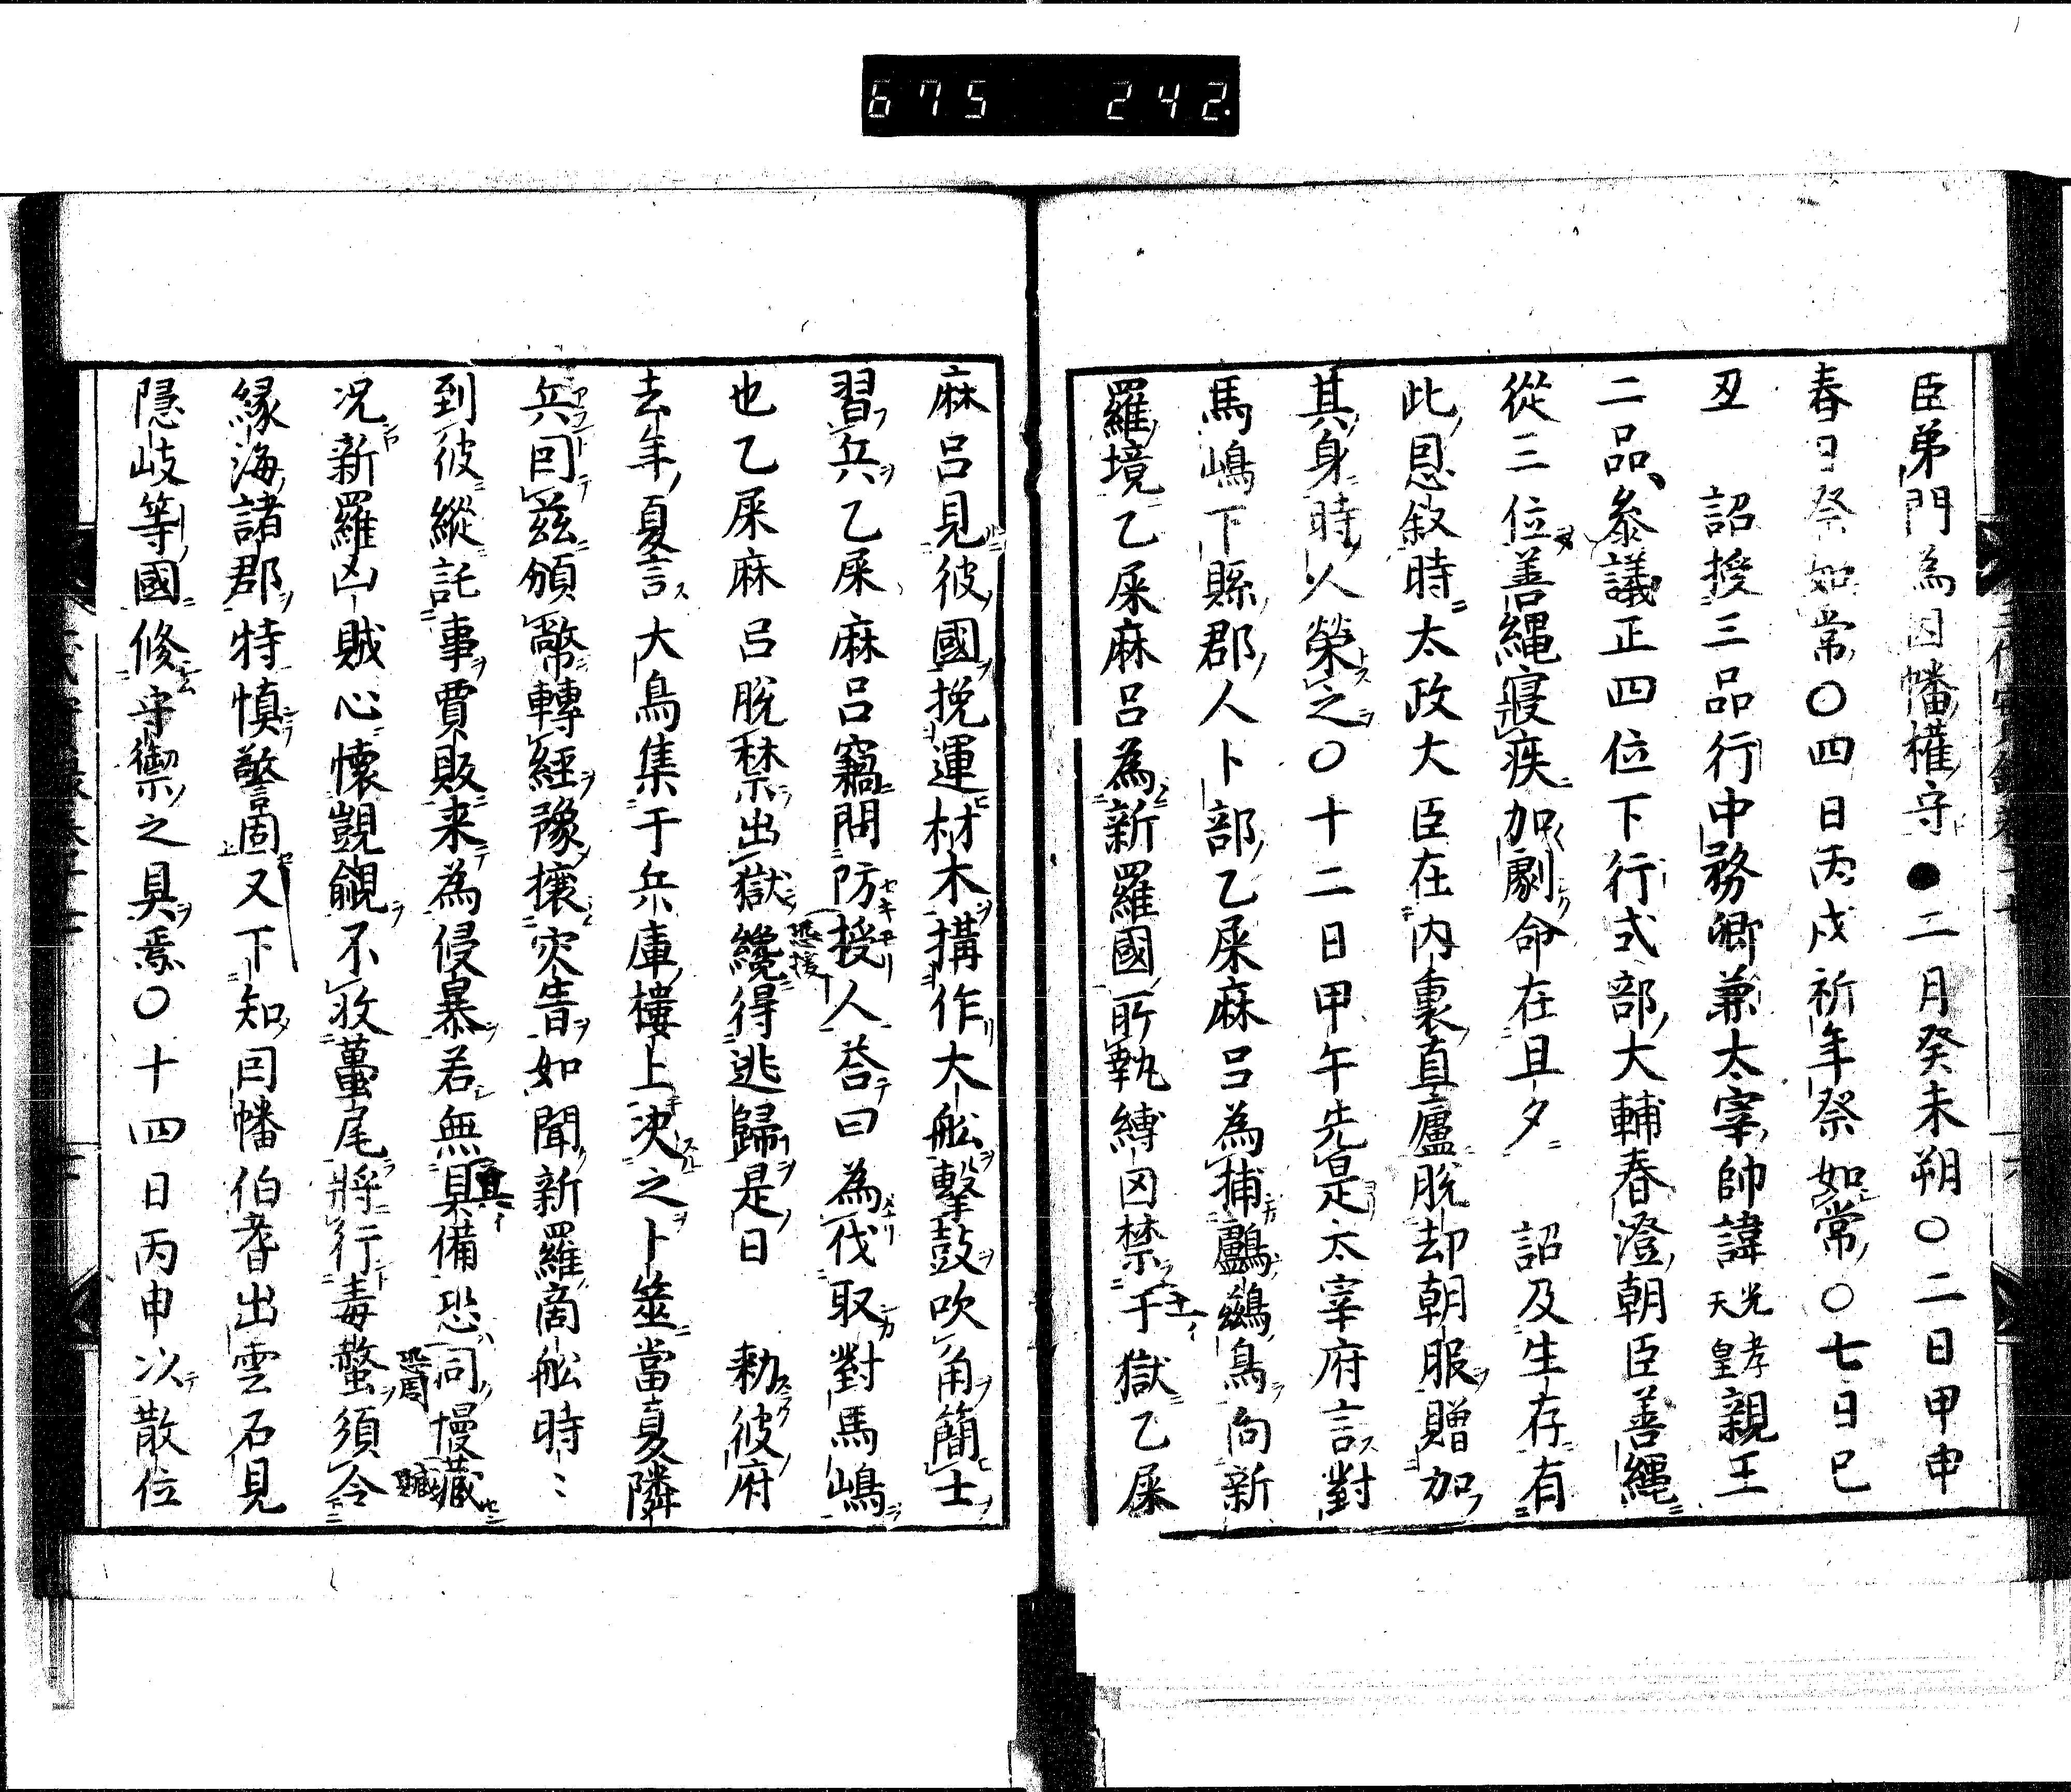 675 242.
臣弟門為因幡權守●二月癸未朔○二日甲申
春日祭如常○四日丙戌祈年祭如常○七日己
丑 詔授三品行中務卿兼太宰帥諱光孝天皇親王
二品參議正四位下行式部大輔春澄朝臣善繩
從三位善繩寢疾加劇命在且夕 詔及生存有
此恩敘時太政大臣在內裏直廬脫却朝服贈加
其身時人榮之○十二日甲午先是太宰府言對
馬嶋下縣郡人卜部乙屎麻呂為捕鸕鷀鳥向新
羅境乙屎麻呂為新羅國所執縛囚禁于獄乙屎
麻呂見彼國挽運材木搆作大舩擊鼓吹角簡士
習兵乙屎麻呂竊問防授人荅曰為伐取對馬嶋
恐援イ
也乙屎麻呂脫禁出獄纔得逃歸是日 勅彼府
去年夏言大鳥集于兵庫樓上决之卜筮當夏隣
兵囙茲頒幣轉經豫攘灾眚如聞新羅商舩時〻
到彼縱託事賈販来為侵暴若無具備恐同慢藏
其イ
恐周
賊
况新羅凶賊心懷覬覦不收蠆尾將行毒螫須令
緣海諸郡特慎警固又下知囙幡伯耆出雲石見
隱岐等國修守禦之具焉○十四日丙申以散位